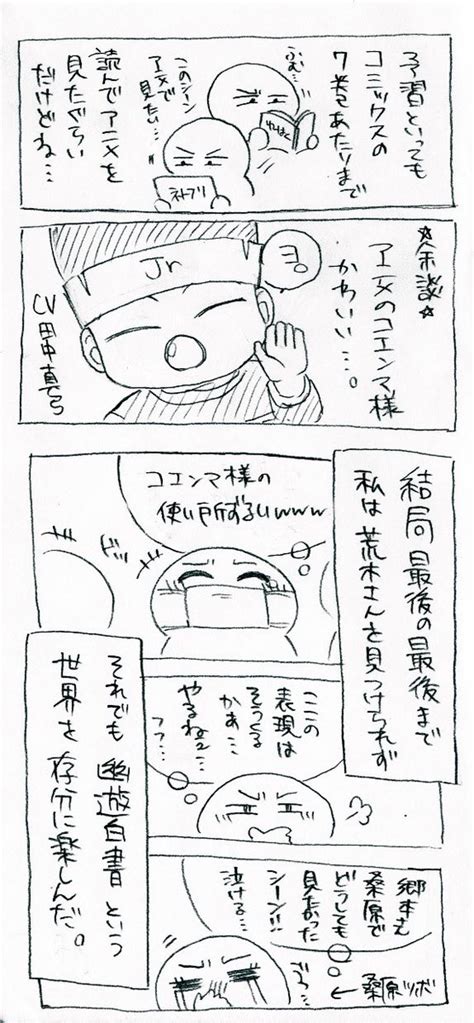 予習といっても
コミックスの
7巻あたりまで
ふむ…
ゆうはく
このシーン
アニメで
見たい…
ネトフリ
読んでアニメを
見たぐらい
だけどね…
☆余談☆
アニメのコエンマ様
かわいい…。
ヨ。
Jr
CV田中真弓
結局最後の最後まで
私は荒木さんを見つけられず
コエンマ様の
使い所ずるいwww
ドッ
ここの
表現は
そうくる
かぁ…
やるね…
フフ…
それでも幽遊白書という
世界を存分に楽しんだ。
郷本さん
桑原で
どうしても
見たかった
シーン!!
泣ける…
←桑原ツボ